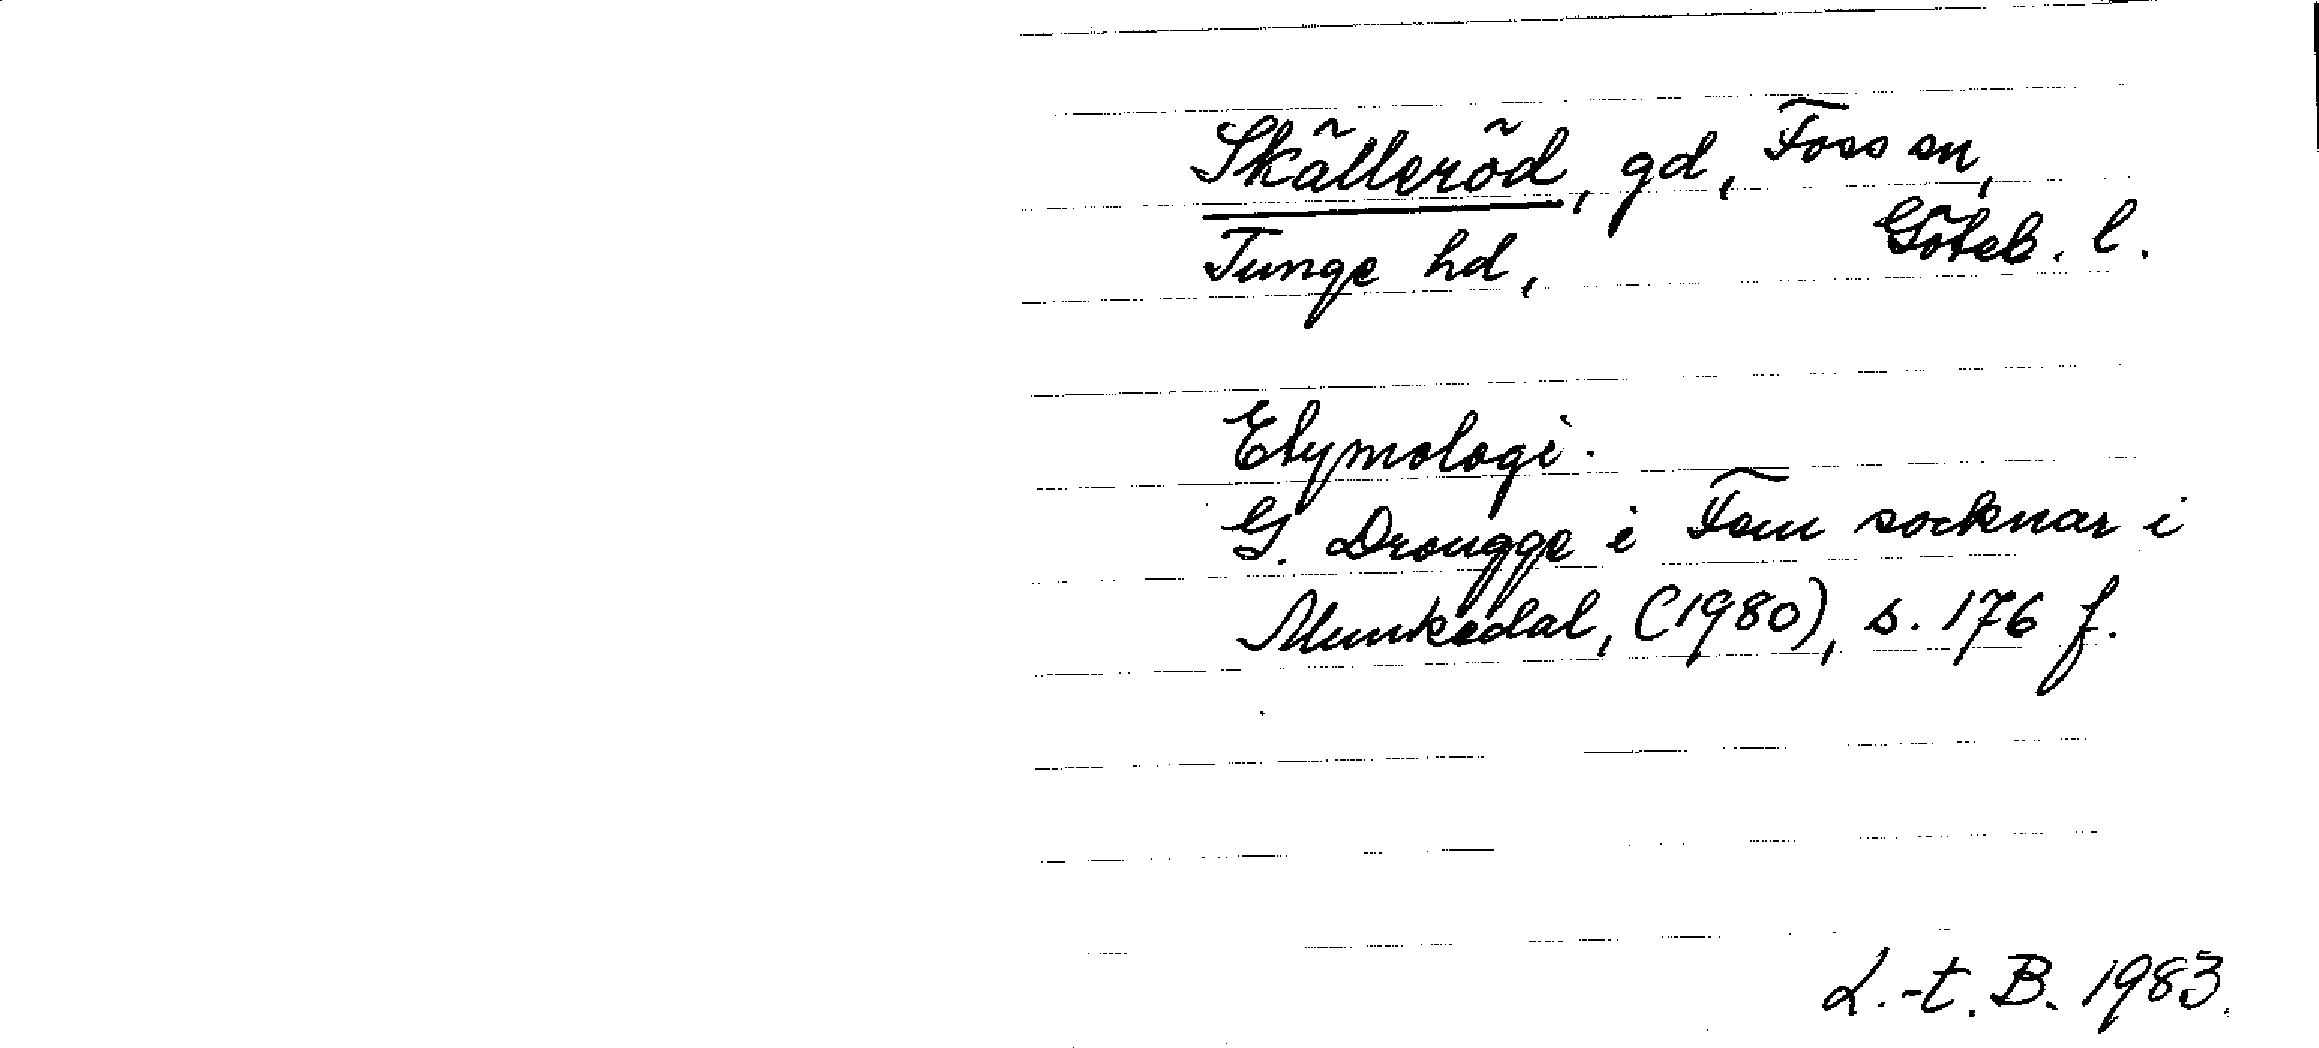 Skälleröd, gd, Foss sn,
Tunge hd, Göteb. l.
Etymologi.
G. Drougge i Fem socknar i
Munkedal, (1980), s. 176 f.
L.-t. B. 1983.